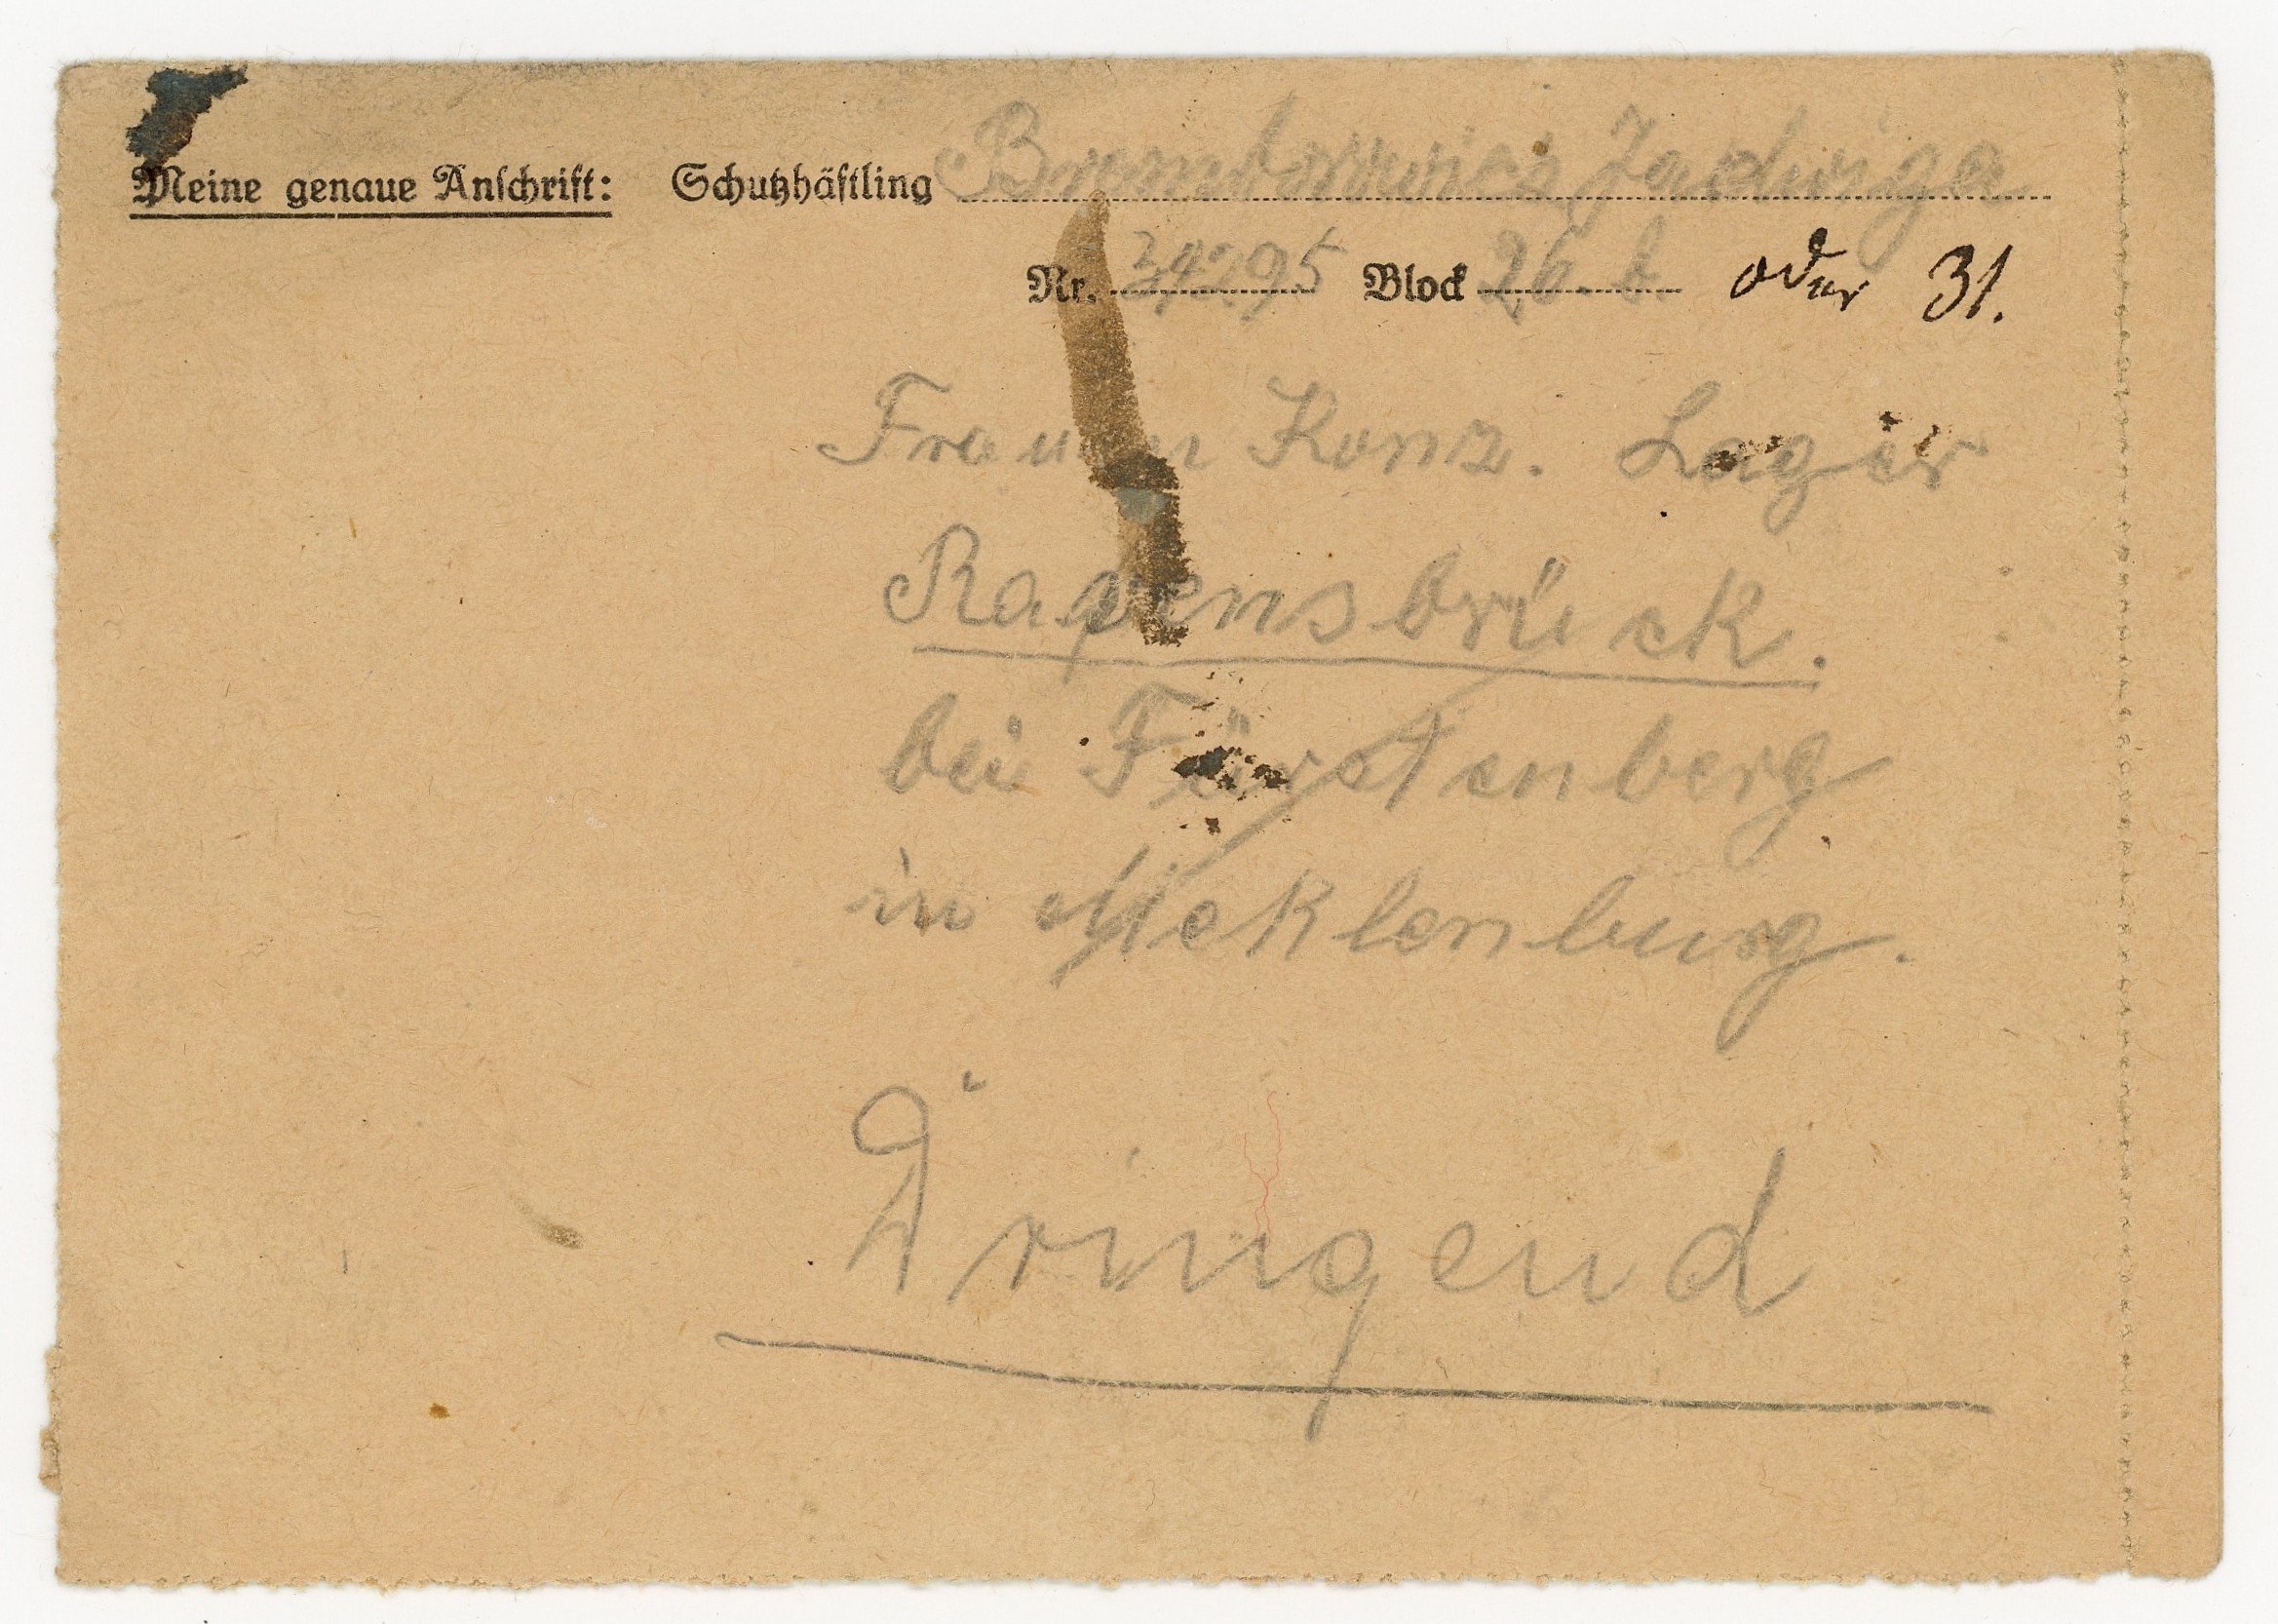 Meine genaue Anschrift: Schutzhäftling Jadwiga
Nr. 34295 Block 26. b. oder 31.
Frauen Konz. Lager
Ravensbrück.
bei Fürstenberg
in Meklenburg.
Dringend